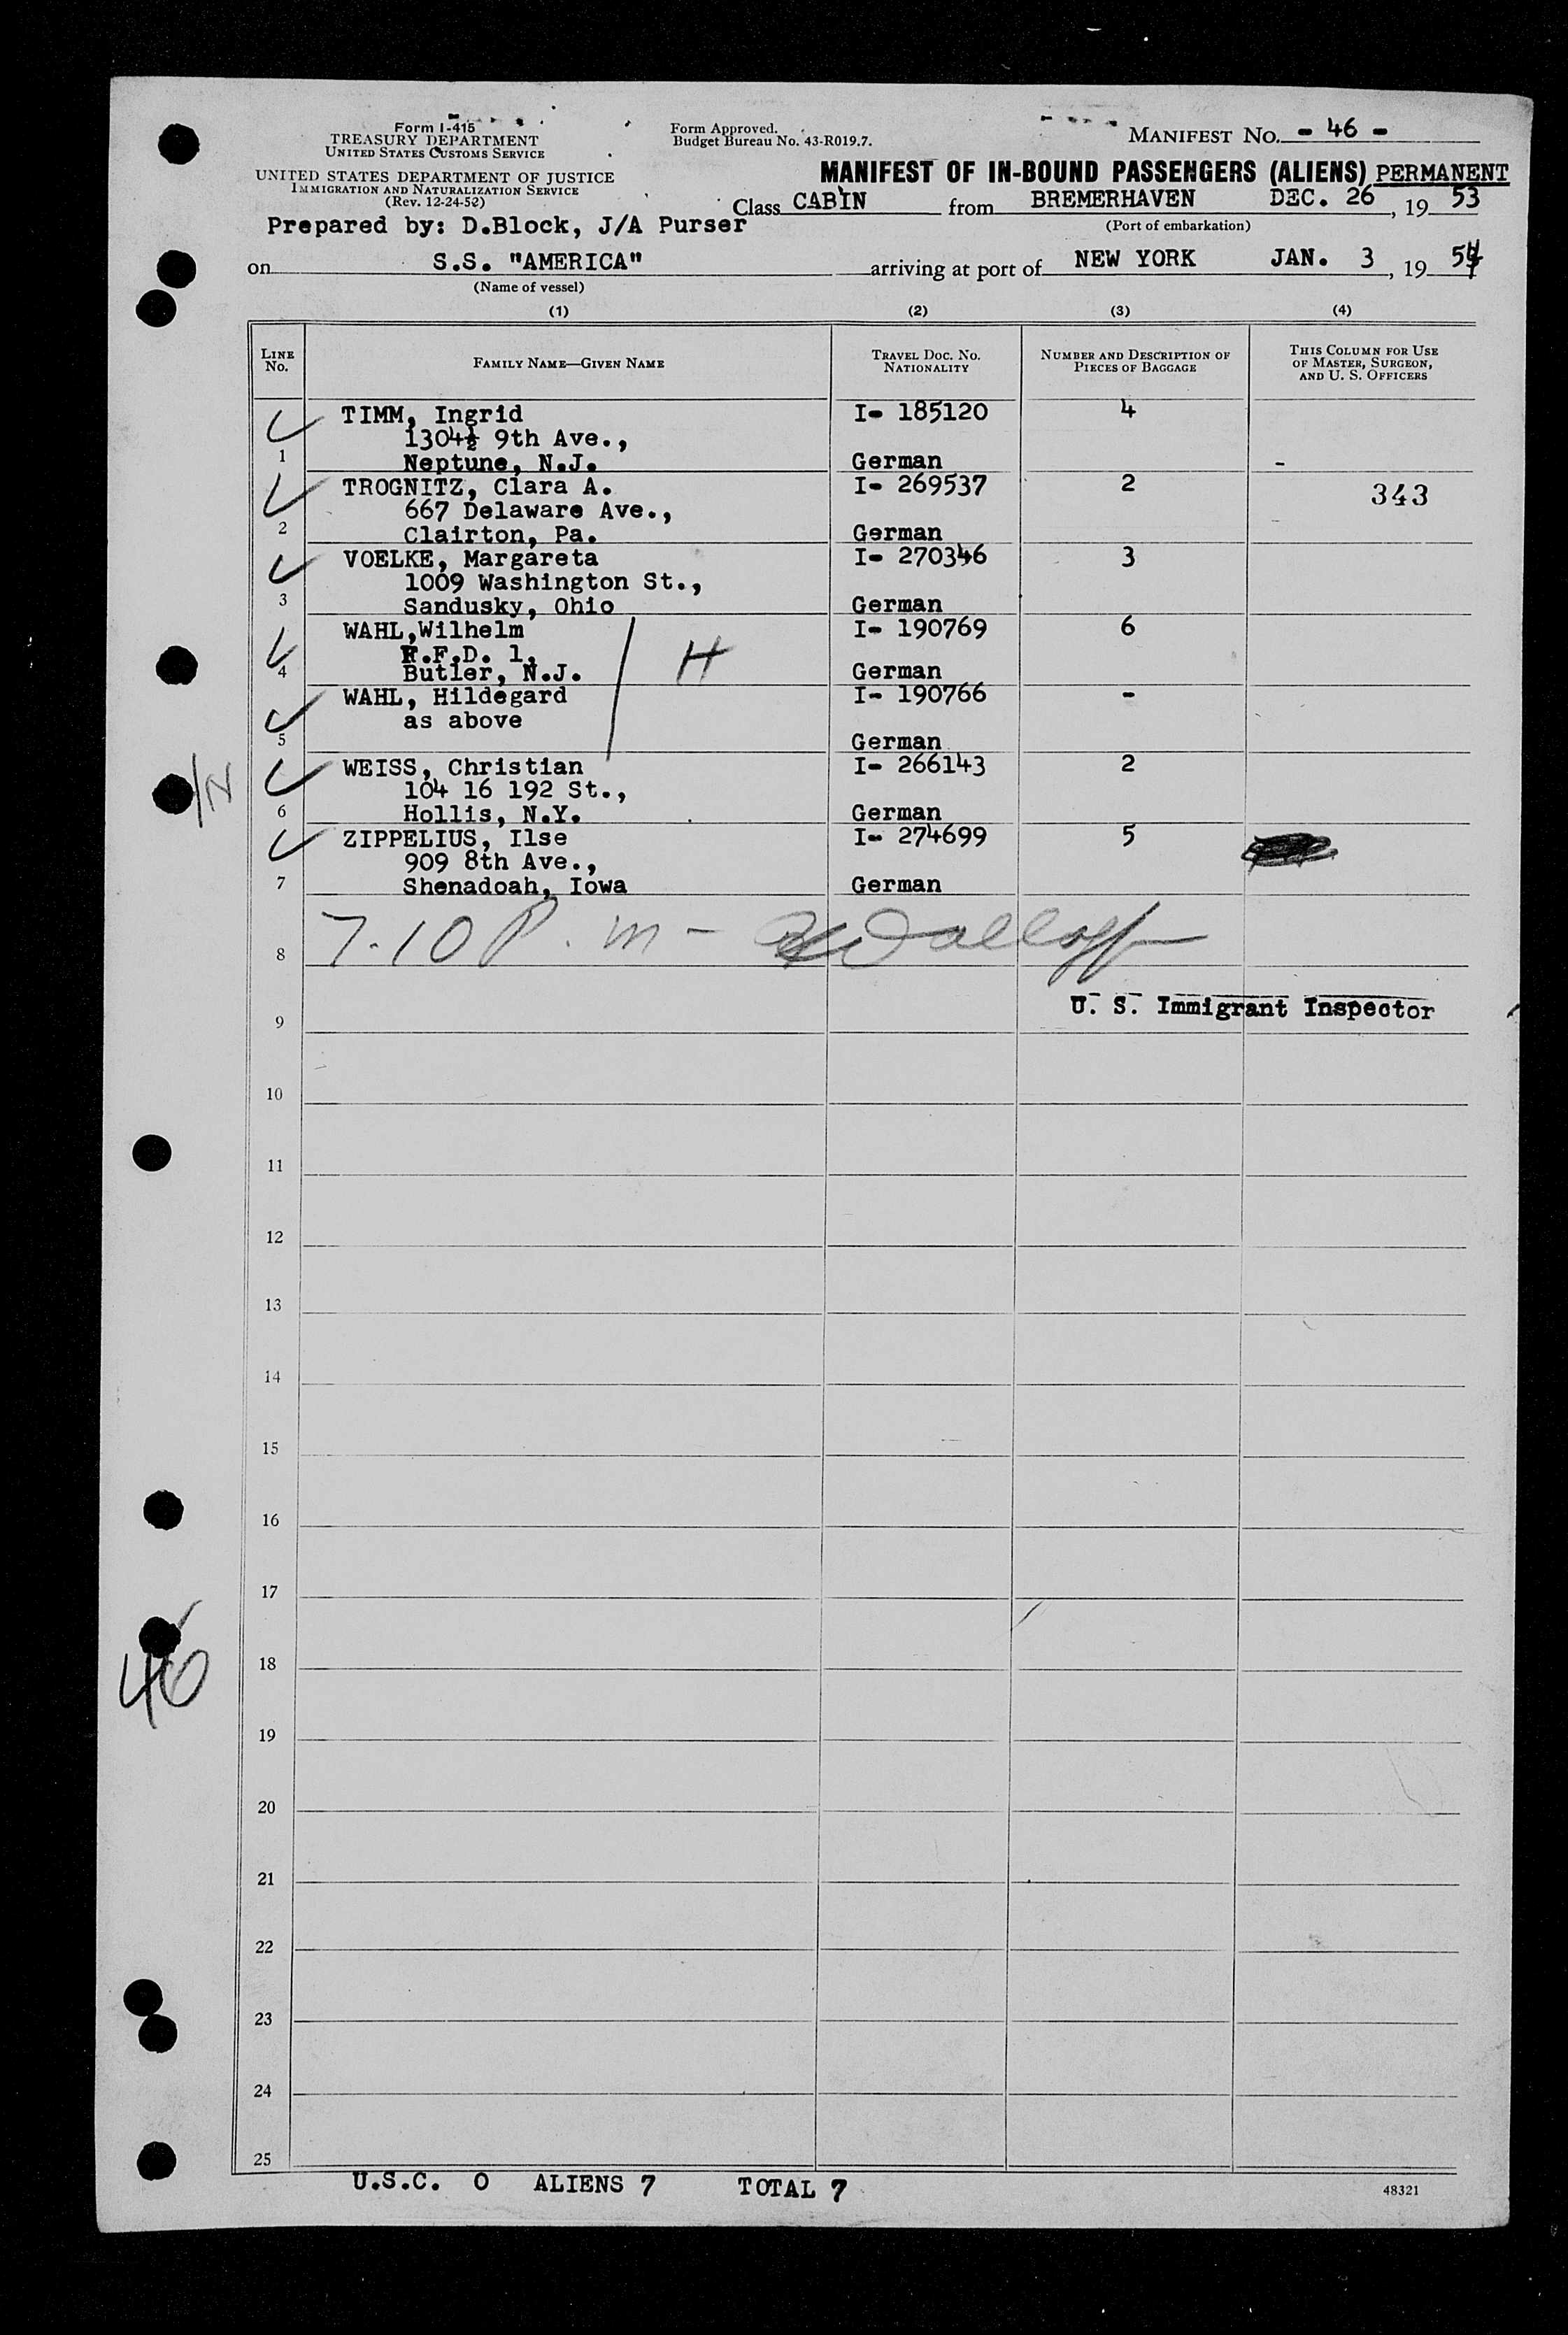 Form I-415
TREASURY DEPARTMENT
UNITED STATES CUSTOMS SERVICE
UNITED STATES DEPARTMENT OF JUSTICE
IMMIGRATION AND NATURALIZATION SERVICE
(Rev. 12-24-52)
Form Approved.
Budget Bureau No. 43-R019.7.
MANIFEST NO. - 46 -
MANIFEST OF IN-BOUND PASSENGERS (ALIENS) PERMANENT
Class CABIN from BREMERHAVEN DEC. 26, 19 53
(Port of embarkation)
Prepared by: D.Block, J/A Purser
on S.S. "AMERICA" arriving at port of NEW YORK JAN. 3, 19 54
(Name of vessel)
(1) (2) (3) (4)
LINE No. FAMILY NAME—GIVEN NAME TRAVEL DOC. NO. NATIONALITY NUMBER AND DESCRIPTION OF PIECES OF BAGGAGE THIS COLUMN FOR USE OF MASTER, SURGEON, AND U. S. OFFICERS
TIMM, Ingrid I- 185120 4
1304½ 9th Ave.,
1 Neptune, N.J. German -
TROGNITZ, Clara A. I- 269537 2 343
667 Delaware Ave.,
2 Clairton, Pa. German
VOELKE, Margareta I- 270346 3
1009 Washington St.,
3 Sandusky, Ohio German
WAHL,Wilhelm I- 190769 6
R.F.D. 1, H
4 Butler, N.J. German
WAHL, Hildegard I- 190766 -
as above
5 German
WEISS, Christian I- 266143 2
104 16 192 St.,
6 Hollis, N.Y. German
ZIPPELIUS, Ilse I- 274699 5
909 8th Ave.,
7 Shenadoah, Iowa German
8 7.10 P.m -
U. S. Immigrant Inspector
9
10
11
12
13
14
15
16
17
46
18
19
20
21
22
23
24
25
U.S.C. 0 ALIENS 7 TOTAL 7
48321